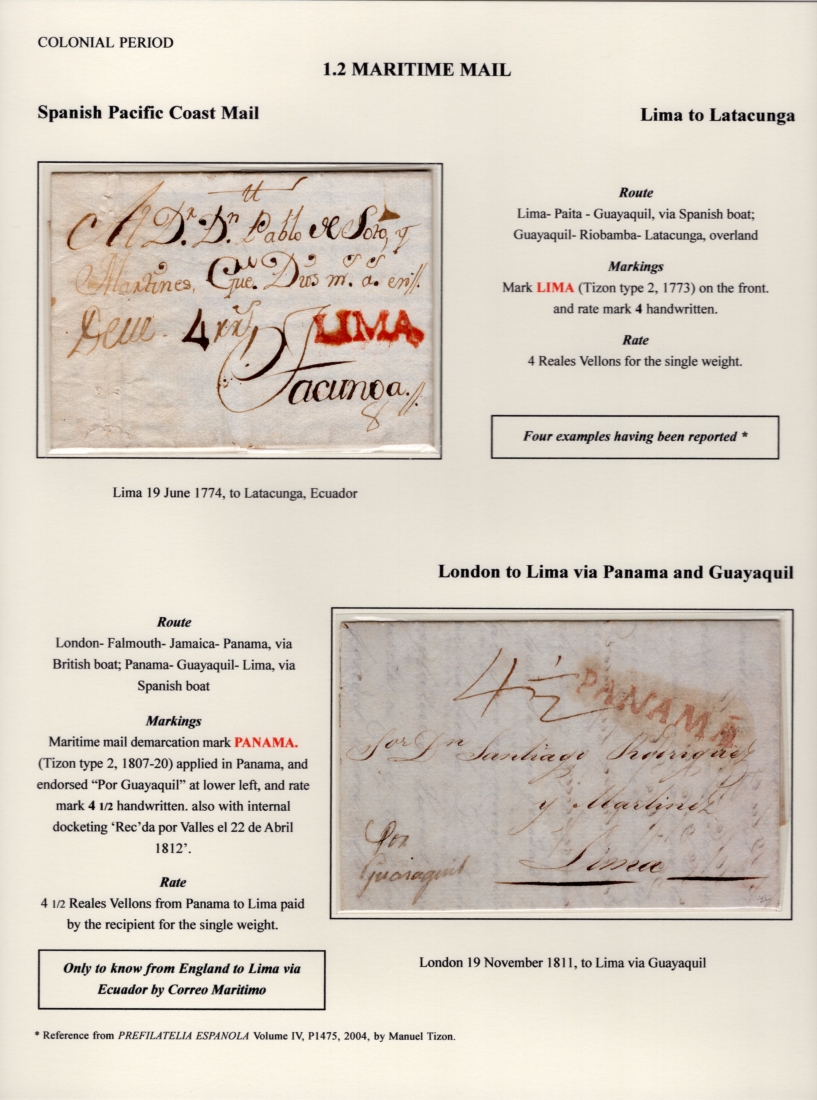 COLONIAL PERIOD
1.2 MARITIME MAIL
Spanish Pacific Coast Mail
Lima to Latacunga
tt
A Dr. Dn. Pablo de Soto, y
Martines, Gue. Dios m. a. en
Deve 4 rrs LIMA
Tacunga.
8
Route
Lima- Paita - Guayaquil, via Spanish boat;
Guayaquil- Riobamba- Latacunga, overland
Markings
Mark LIMA (Tizon type 2, 1773) on the front.
and rate mark 4 handwritten.
Rate
4 Reales Vellons for the single weight.
Four examples having been reported *
Lima 19 June 1774, to Latacunga, Ecuador
London to Lima via Panama and Guayaquil
Route
London- Falmouth- Jamaica- Panama, via
British boat; Panama- Guayaquil- Lima, via
Spanish boat
Markings
Maritime mail demarcation mark PANAMA.
(Tizon type 2, 1807-20) applied in Panama, and
endorsed “Por Guayaquil” at lower left, and rate
mark 4 1/2 handwritten. also with internal
docketing ‘Rec’da por Valles el 22 de Abril
1812’.
Rate
4 1/2 Reales Vellons from Panama to Lima paid
by the recipient for the single weight.
Only to know from England to Lima via
Ecuador by Correo Maritimo
4 1/2 PANAMÁ
Sor Dn Santiago Rodriguez
y Martinez
Lima
Por
Guaiaquil
London 19 November 1811, to Lima via Guayaquil
* Reference from PREFILATELIA ESPANOLA Volume IV, P1475, 2004, by Manuel Tizon.